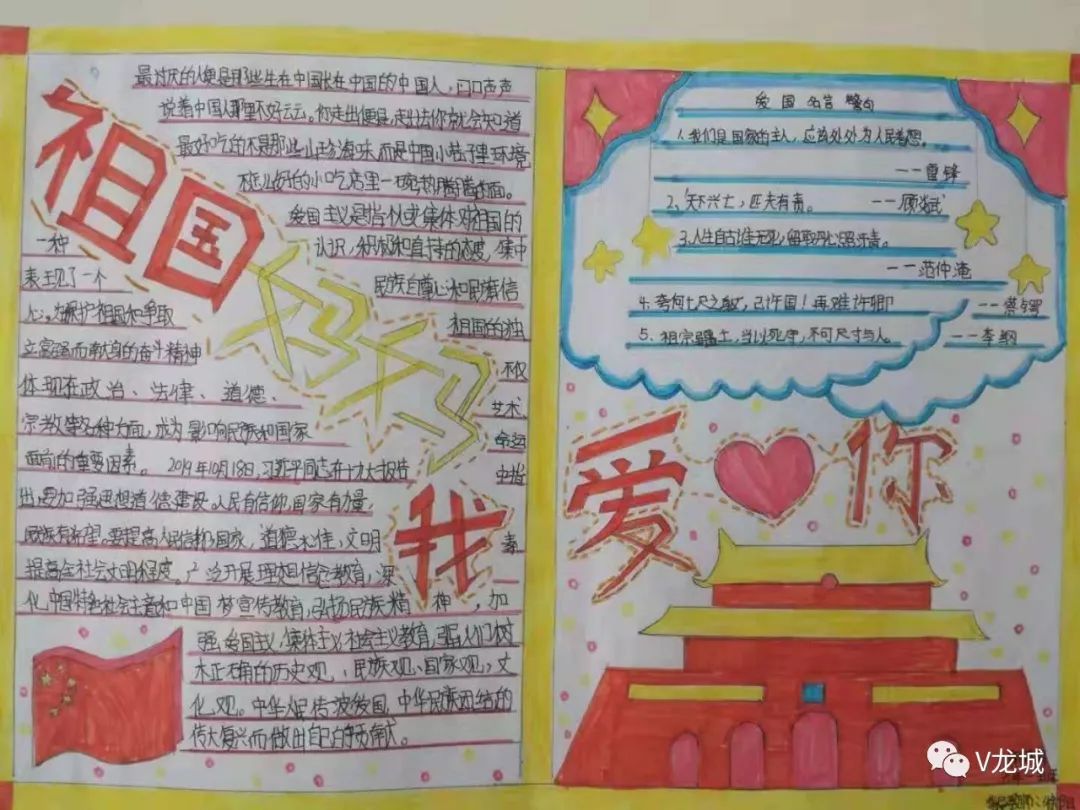 祖国妈妈我爱你
最讨厌的人便是那些生在中国长在中国的中国人，口口声声
说着中国人哪里不好云云。你走出便是，走出去你就会知道
最好吃的不是那些山珍海味而是中国小巷子里环境
不怎么好的小吃店里一碗热腾腾的面。
爱国主义是指个人或集体对祖国的
一种 认识，积极和支持的态度，集中
表现了一个 民族自尊心和民族自信
心，为保护祖国和争取 祖国的独
立富强而献身的奋斗精神 不仅
体现在政治、法律、道德、 艺术、
宗教等各种方面，成为影响民族和国家 命运
面向的重要因素。2019年10月18日，习近平同志在十九大报告 中指
出，要加强思想道德建设。人民有信仰，国家有力量，
民族有希望，要提高人民信仰，国家，道德水准，文明 素
提高全社会文明程度。广泛开展理想信念教育，深
化中国特色社会主义和中国梦宣传教育，弘扬民族精神，加
强爱国主义，集体主义，社会主义教育，引导人们树
木正确的历史观、民族观、国家观，文
化观。中华民 爱国，中华民族团结的
伟大复兴而做出自己的 贡献。
爱国名言警句
1、我们是国家的主人，应该处处为人民着想。
——雷锋
2、天下兴亡，匹夫有责。——顾炎武
3、人生自古谁无死，留取丹心照汗青。
——范仲淹
4、夸何七尺之躯，已许国！再难许卿 ——蔡锷
5、祖宗疆土，当以死守，不可尺寸与人。——李纲
V龙城